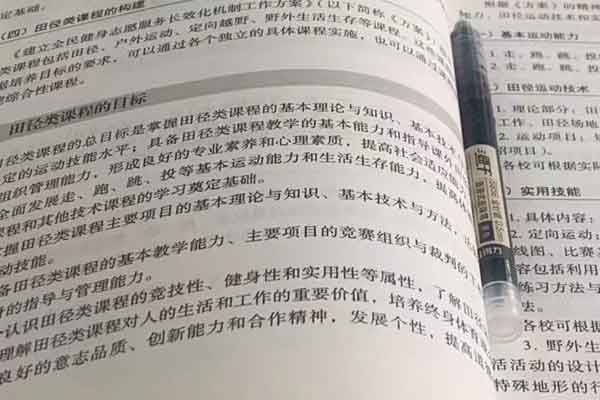 (四)田径类课程的构建
《建立全民健身志愿服务长效化机制工作方案》(以下简称《方案》
类课程包括田径、户外运动、定向越野、野外生活生存等课程。这些
培养目标的要求,可以通过各个独立的具体课程实施,也可以通过
综合性课程。
田径类课程的目标
田径类课程的总目标是掌握田径类课程的基本理论与知识、基本技术
定的运动技能水平;具备田径类课程教学的基本能力和指导课外
组织管理能力,形成良好的专业素养和心理素质,提高社会适应
全面发展走、跑、跳、投等基本运动能力和生活生存能力,提
课程和其他技术课程的学习奠定基础。
握田径类课程主要项目的基本理论与知识、基本技术与方法,
动技能。
备田径类课程的基本教学能力、主要项目的竞赛组织与裁判的
的指导与管理能力。
认识田径类课程的竞技性、健身性和实用性等属性,了解田径
理解田径类课程对人的生活和工作的重要价值,培养终身体
良好的意志品质、创新能力和合作精神,发展个性,提高
根据《方案》的精神
能力、田径运动技术和实
基本运动能力
1. 走、跑、跳、投
2. 走、跑、跳、投
田径运动技术
1. 理论部分:田
工作、田径场地
2. 运动项目:
招项目)。
各校可根据实际
实用技能
1. 具体内容:
2. 定向运动:
线图、比赛
容包括利用
练习方法与
各校可根
3. 野外生
活活动的设计
特殊地形的行
得力